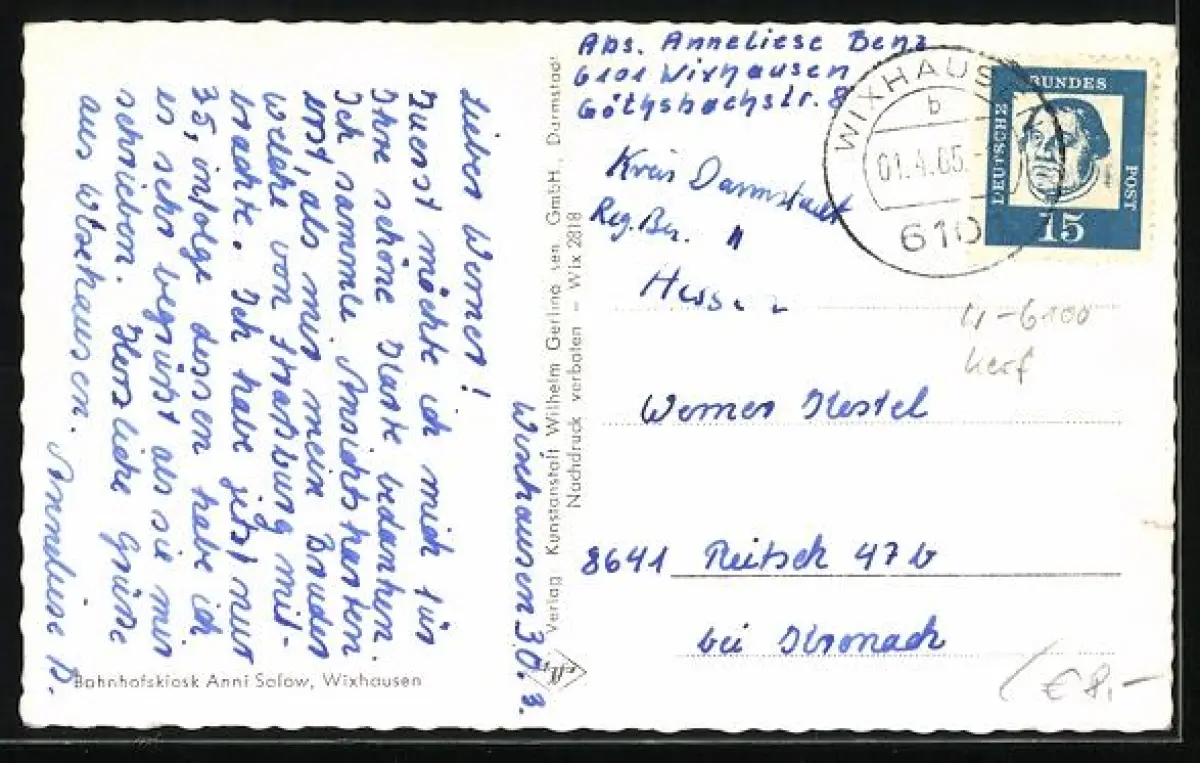 Wixhausen 30. 3.
Lieber Werner!
Zuerst möchte ich mich für
Ihre schöne Karte bedanken.
Ich sammle Ansichtskarten
erst, als mir mein Bruder
welche von Hamburg mit-
brachte. Ich habe jetzt nur
35, infolge dessen habe ich
es sehr begrüßt als sie mir
schrieben. Herzliche Grüße
aus Wixhausen.
Anneliese B.
Bahnhofskiosk Anni Solow, Wixhausen
Verlag: Kunstanstalt Wilhelm Gerling sen. GmbH., Darmstadt
Nachdruck verboten – Wix 2818
Abs. Anneliese Benz
6101 Wixhausen
Göthsbachstr. 8
Kreis Darmstadt
Reg. Bez.
Hessen
WIXHAUS
b
01.4.65.
610
DEUTSCHE
BUNDES
POST
15
W-6100
Werner Kestel
8641 Reitsch 47 b
bei Kronach
€ 8,-